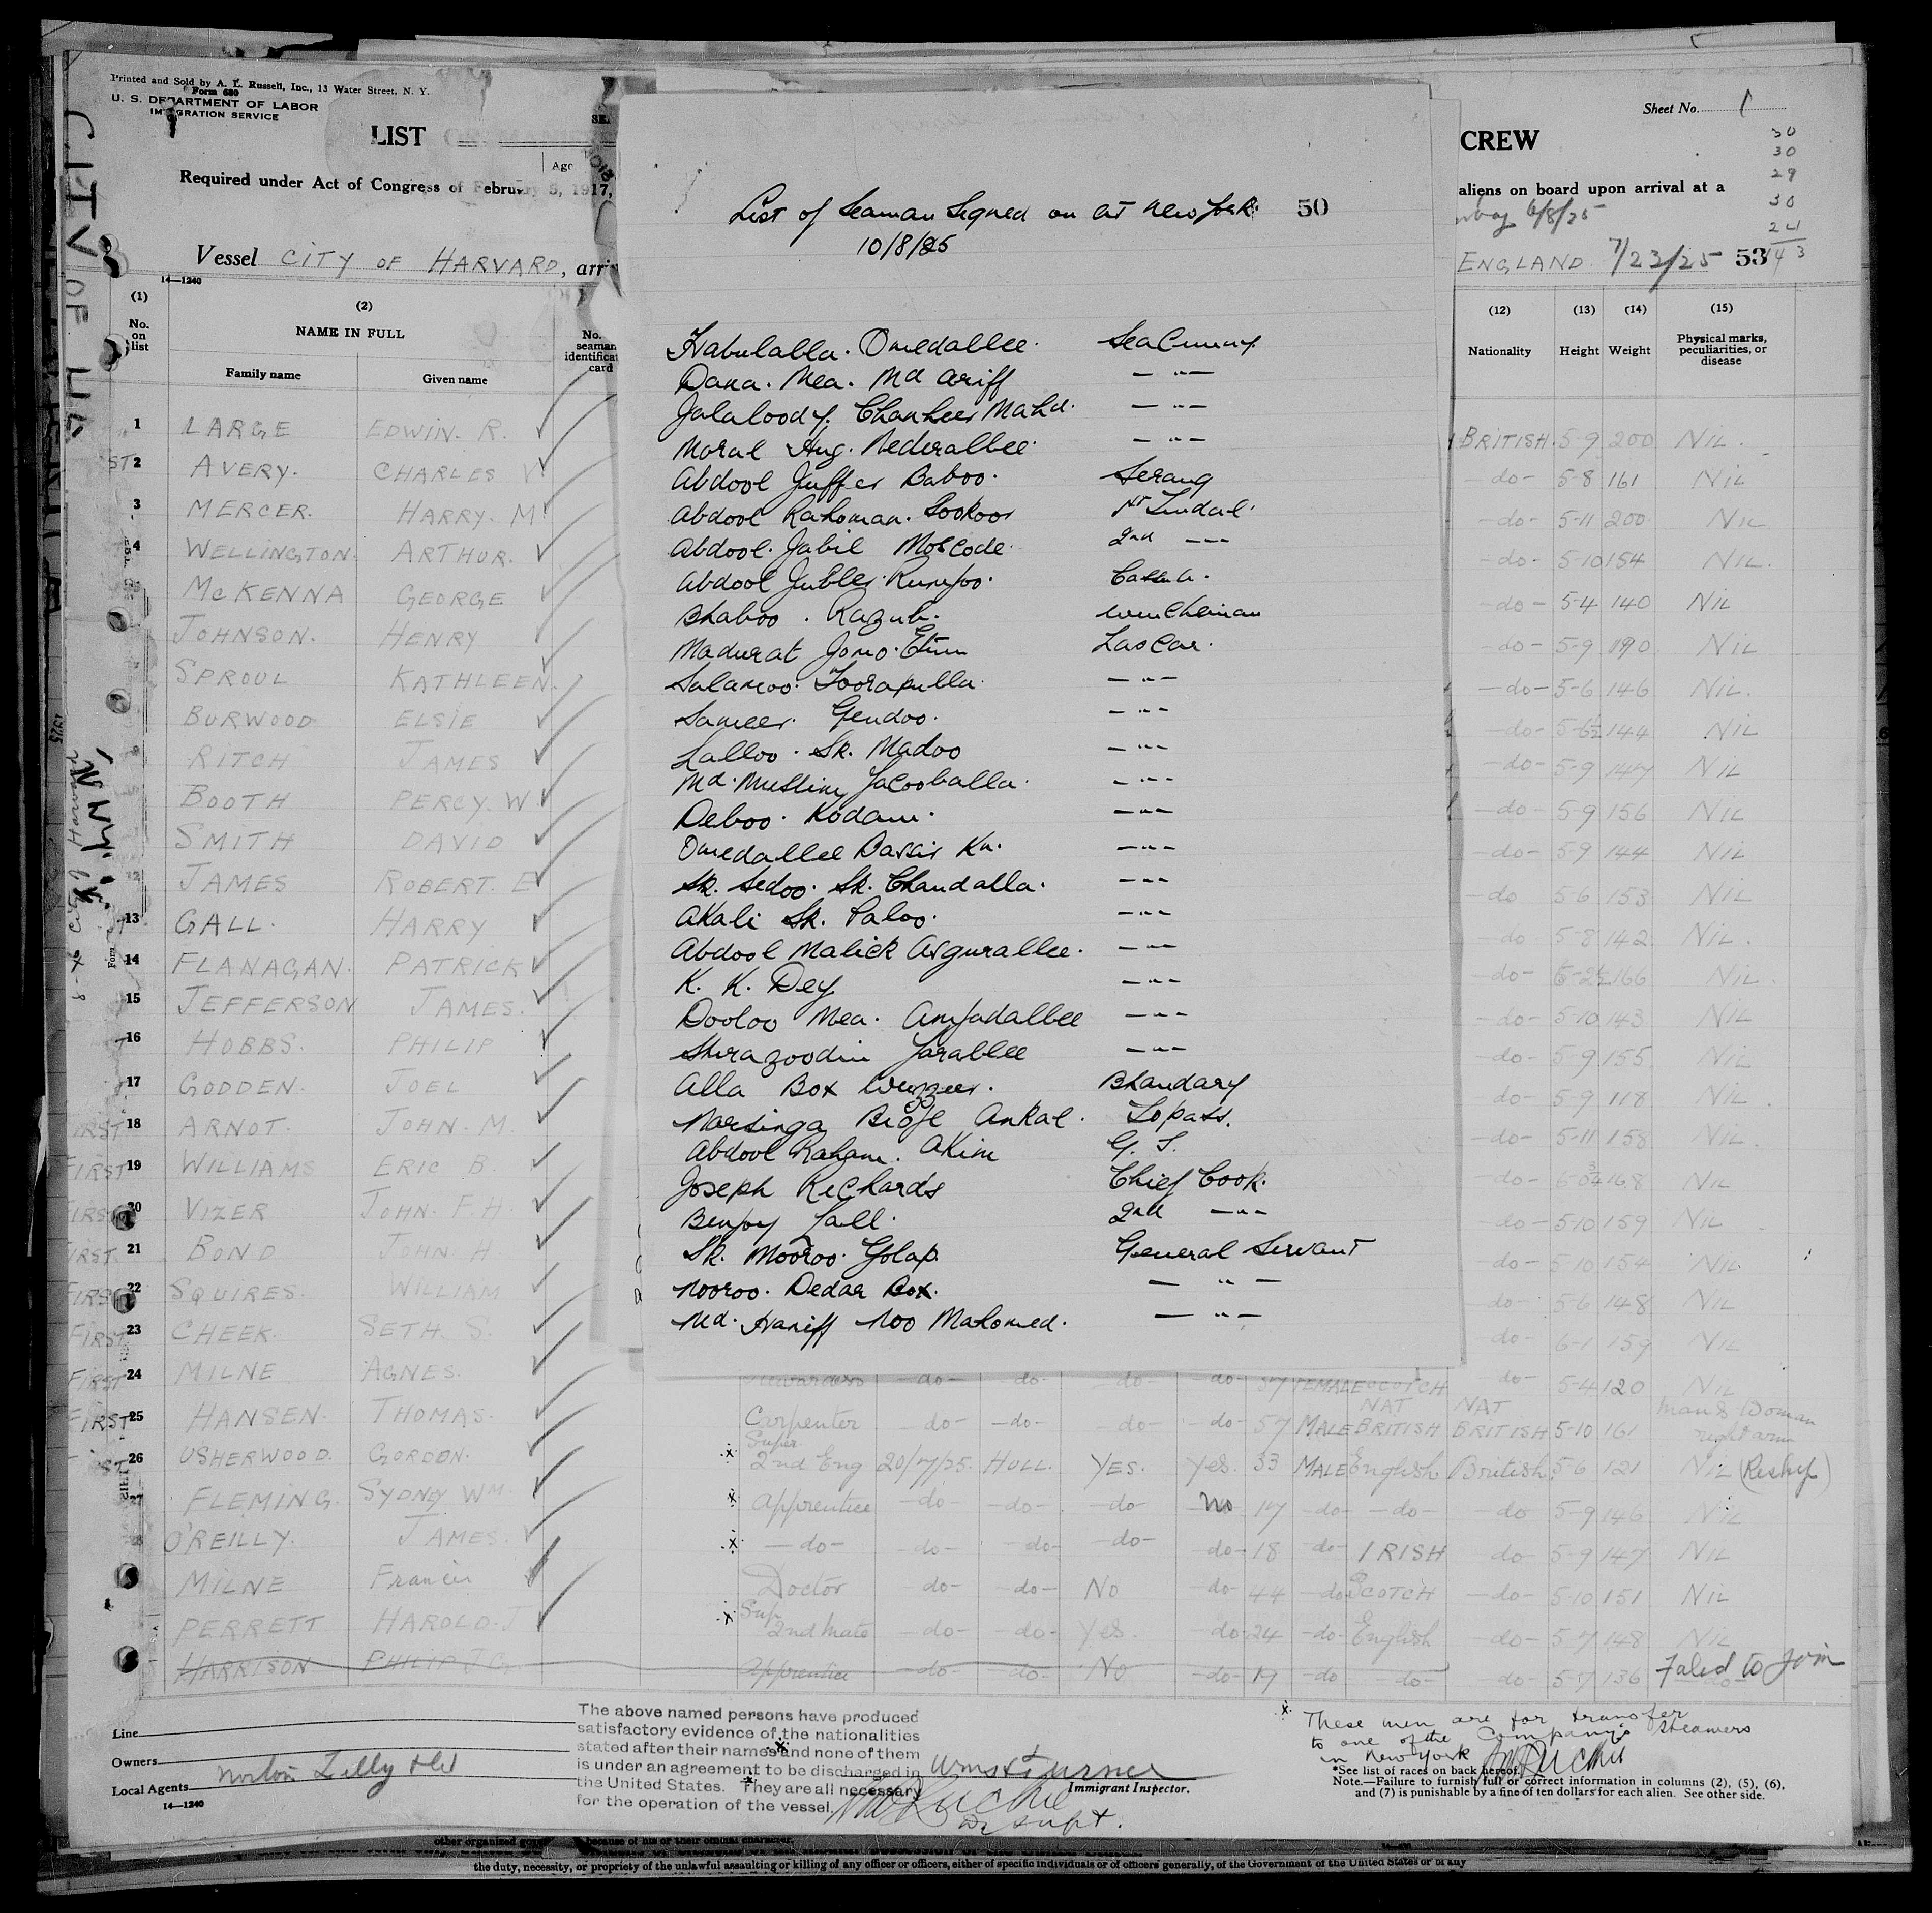 Printed and Sold by A. L. Russell, Inc., 13 Water Street, N. Y.
Form 680
U. S. DEPARTMENT OF LABOR
IMMIGRATION SERVICE
LIST
Age
Required under Act of Congress of February 5, 1917,
Vessel CITY OF HARVARD, arri
14—1240
CREW
Sheet No. 1
30
30
29
30
24
143
aliens on board upon arrival at a
6/8/25
ENGLAND 7/23/25 53
List of Seaman Signed on at New York. 50
10/8/25
Kabulalla. Omedallee. SeaCunny
Dana. Mea. Md Ariff — " —
Jalaloody. Chankeer Mahd. — " —
Moral Aug. Nederallee. — " —
Abdool Juffer Baboo. Serang
Abdool Rahoman. Sookoor 1st Tindal.
Abdool. Jabil Moscode. 2nd — " —
Abdool Jubber. Rumjoo. Cassab.
Bhaboo. Razub. Winchman
Madurat Jomo. Etim Lascar.
Salamoo. Toorapulla. — " —
Sameer. Gendoo. — " —
Lalloo. Sk. Madoo — " —
Md. Muslim Jacooballa. — " —
Deboo. Kodam. — " —
Omedallee Bassir Kn. — " —
Sk. Sedoo. Sk. Chandalla. — " —
Akali Sk. Paloo. — " —
Abdool Malick Asgurallee. — " —
K. K. Dey — " —
Dooloo Mea. Amjadallee — " —
Sherazoodin Jarallee — " —
Alla Box Wuzzeer. Bhandary
Narsinga Ankal. Topass.
Abdool Raham. Akim G. S.
Joseph Richards Chief Cook.
Benjoy Lall. 2nd — " —
Sk. Mooroo. Golap. General Servant
Nooroo. Dedar Box. — " —
Md. Haniff Noo Mahomed. — " —
(1) No. on list
(2) NAME IN FULL
Family name Given name
No. seaman identificat card
(12) Nationality
(13) Height
(14) Weight
(15) Physical marks, peculiarities, or disease
1 LARGE EDWIN. R. BRITISH. 5-9 200 NIL.
ST 2 AVERY. CHARLES W -do- 5-8 161 NIL
3 MERCER. HARRY. M. -do- 5-11 200 NIL
4 WELLINGTON. ARTHUR. -do- 5-10 154 NIL.
McKENNA GEORGE -do- 5-4 140 NIL
JOHNSON. HENRY -do- 5-9 190 NIL
SPROUL KATHLEEN. -do- 5-6 146 NIL.
BURWOOD ELSIE -do- 5-6½ 144 NIL
9 RITCH JAMES -do- 5-9 147 NIL
BOOTH PERCY. W. -do 5-9 156 NIL
SMITH DAVID -do- 5-9 144 NIL
12 JAMES ROBERT. E -do 5-6 153 NIL
13 GALL. HARRY do 5-8 142 NIL.
14 FLANAGAN. PATRICK -do- 166 NIL.
15 JEFFERSON JAMES. -do- 5-10 143 NIL
16 HOBBS. PHILIP -do- 5-9 155 NIL
17 GODDEN. JOEL -do- 5-9 118 NIL.
FIRST 18 ARNOT. JOHN. M. -do- 5-11 158 NIL.
FIRST 19 WILLIAMS ERIC B. -do- 168 NIL
FIRST 20 VIZER JOHN. F. H. -do- 5-10 159 NIL
FIRST. 21 BOND JOHN. H. -do- 5-10 154 NIL
FIRST 22 SQUIRES. WILLIAM -do- 5-6 148 NIL
FIRST 23 CHEEK. SETH S. -do 6-1 159 NIL
FIRST 24 MILNE AGNES. Stewardess -do- -do- -do- -do- 37 FEMALE SCOTCH -do- 5-4 120 NIL
FIRST 25 HANSEN. THOMAS. Carpenter -do- -do- -do- -do- 57 MALE NAT BRITISH NAT BRITISH 5-10 161 Man & Woman right arm
ST 26 USHERWOOD. GORDON. x Super 2nd Eng 20/7/25. HULL. YES. Yes. 33 MALE English British 5-6 121 NIL (Reship)
27 FLEMING. SYDNEY WM x Apprentice -do- -do- -do- no 17 -do- -do- -do 5-9 146 NIL
28 O'REILLY. JAMES. x -do- -do- -do- -do- -do- 18 -do- IRISH do 5-9 147 NIL
MILNE Francis Doctor do- -do- No -do- 44 -do SCOTCH -do- 5-10 151 NIL
PERRETT HAROLD. J x Sup 2nd Mate -do- -do- Yes. -do- 24 -do- English -do- 5-7 148 NIL
HARRISON PHILIP J. G. Apprentice -do- do- No -do- 17 -do -do- do 5-7 136 Faled to Join
Line
Owners
Local Agents Norton Lilly & Co
14—1240
The above named persons have produced
satisfactory evidence of the nationalities
stated after their names and none of them
is under an agreement to be discharged in
the United States. They are all necessary
for the operation of the vessel.
Immigrant Inspector.
x These men are for transfer
to one of the Company's steamers
in New York
*See list of races on back hereof.
Note.—Failure to furnish full or correct information in columns (2), (5), (6),
and (7) is punishable by a fine of ten dollars for each alien. See other side.
the duty, necessity, or propriety of the unlawful assaulting or killing of any officer or officers, either of specific individuals or of officers generally, of the Government of the United States or of any